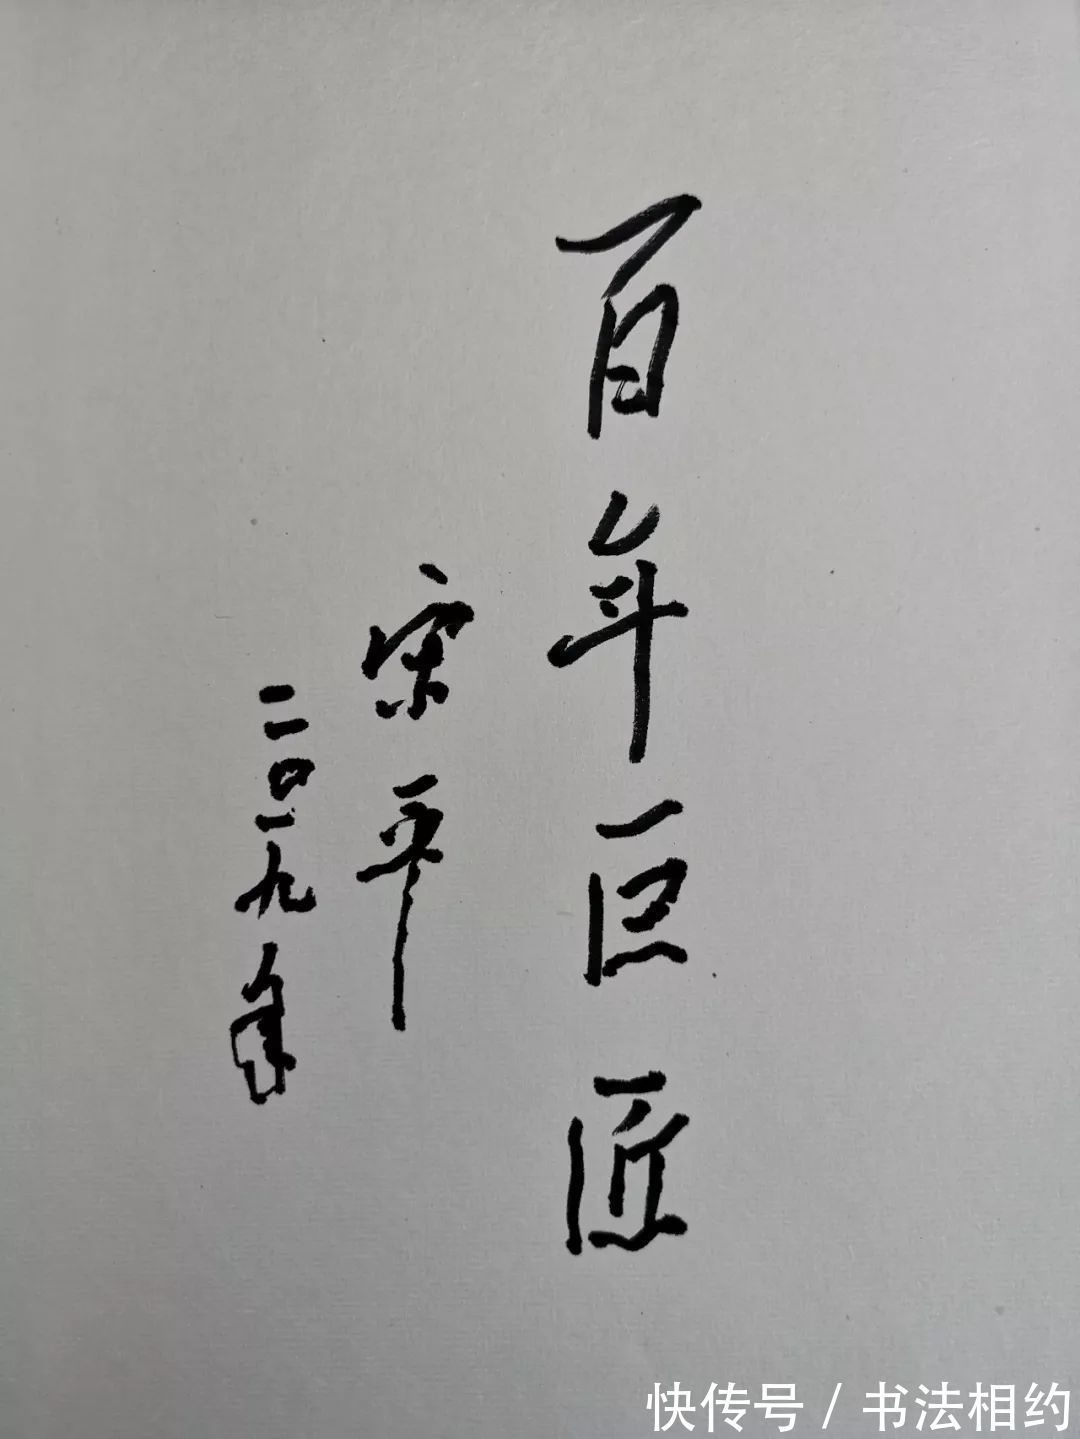 百年巨匠
宋平
二〇一九年
快传号/书法相约